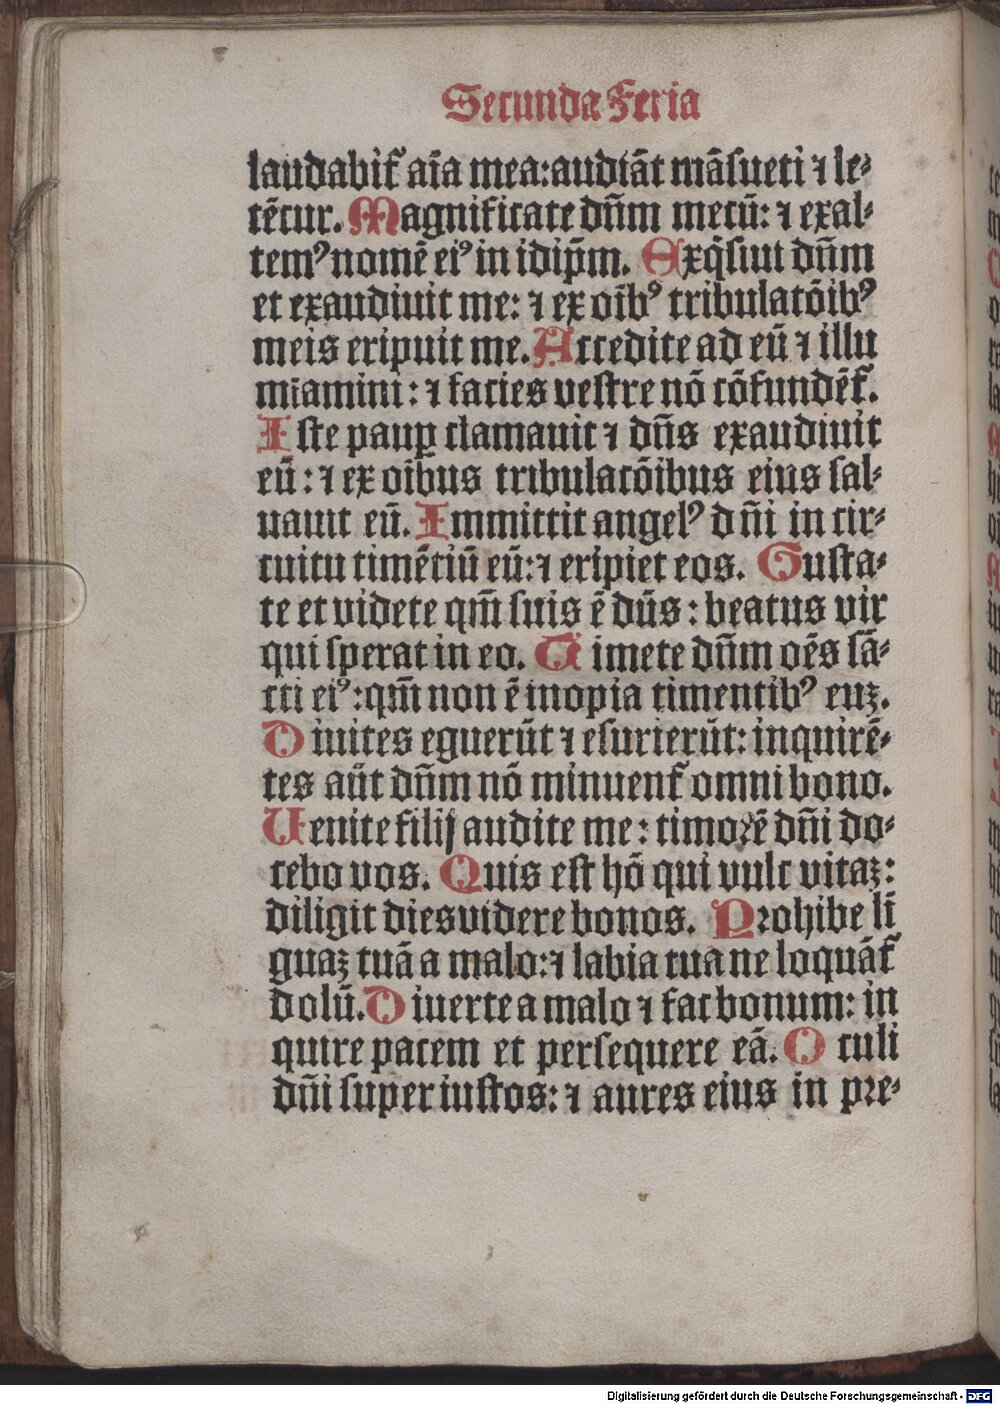 Secunda Feria
laudabit᷑ aīa mea:audiāt māsueti ⁊ le⸗
tētur. Magnificate dn̄m mecū: ⁊ exal⸗
temꝰ nomē eiꝰ in idip̄m. Exq̄siui dn̄m
et exaudiuit me: ⁊ ex oībꝰ tribulatōibꝰ
meis eripuit me. Accedite ad eū ⁊ illu
mīamini: ⁊ facies vestre nō cōfundēt᷑.
Iste paup̱ clamauit ⁊ dn̄s exaudiuit
eū: ⁊ ex oībus tribulatōibus eius sal⸗
uauit eū. Immittit angelꝰ dn̄i in cir⸗
cuitu timētiū eū:⁊ eripiet eos. Gusta⸗
te et videte qm̄ suis ē dn̄s: beatus vir
qui sperat in eo. Timete dn̄m oēs sā⸗
cti eiꝰ:qm̄ non ē inopia timentibꝰ euꝫ.
Diuites eguerūt ⁊ esurierūt: inquirē⸗
tes aūt dn̄m nō minuent᷑ omni bono.
Uenite filij audite me: timorē dn̄i do⸗
cebo vos. Quis est hō qui vult vitaꝫ:
diligit dies videre bonos. Prohibe lī
guaꝫ tuā a malo:⁊ labia tua ne loquāt᷑
dolū. Diuerte a malo ⁊ fac bonum: in
quire pacem et persequere eā. Oculi
dn̄i super iustos: ⁊ aures eius in pre⸗
Digitalisierung gefördert durch die Deutsche Forschungsgemeinschaft - DFG